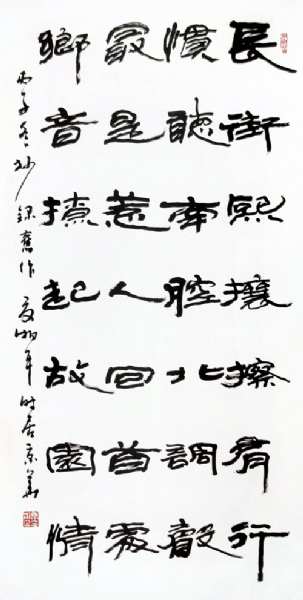 長街熙攘擦肩行
慣聽南腔北調聲
最是惹人回首處
鄉音起故園情
丙子冬杪錄舊作夏湘平時居京華